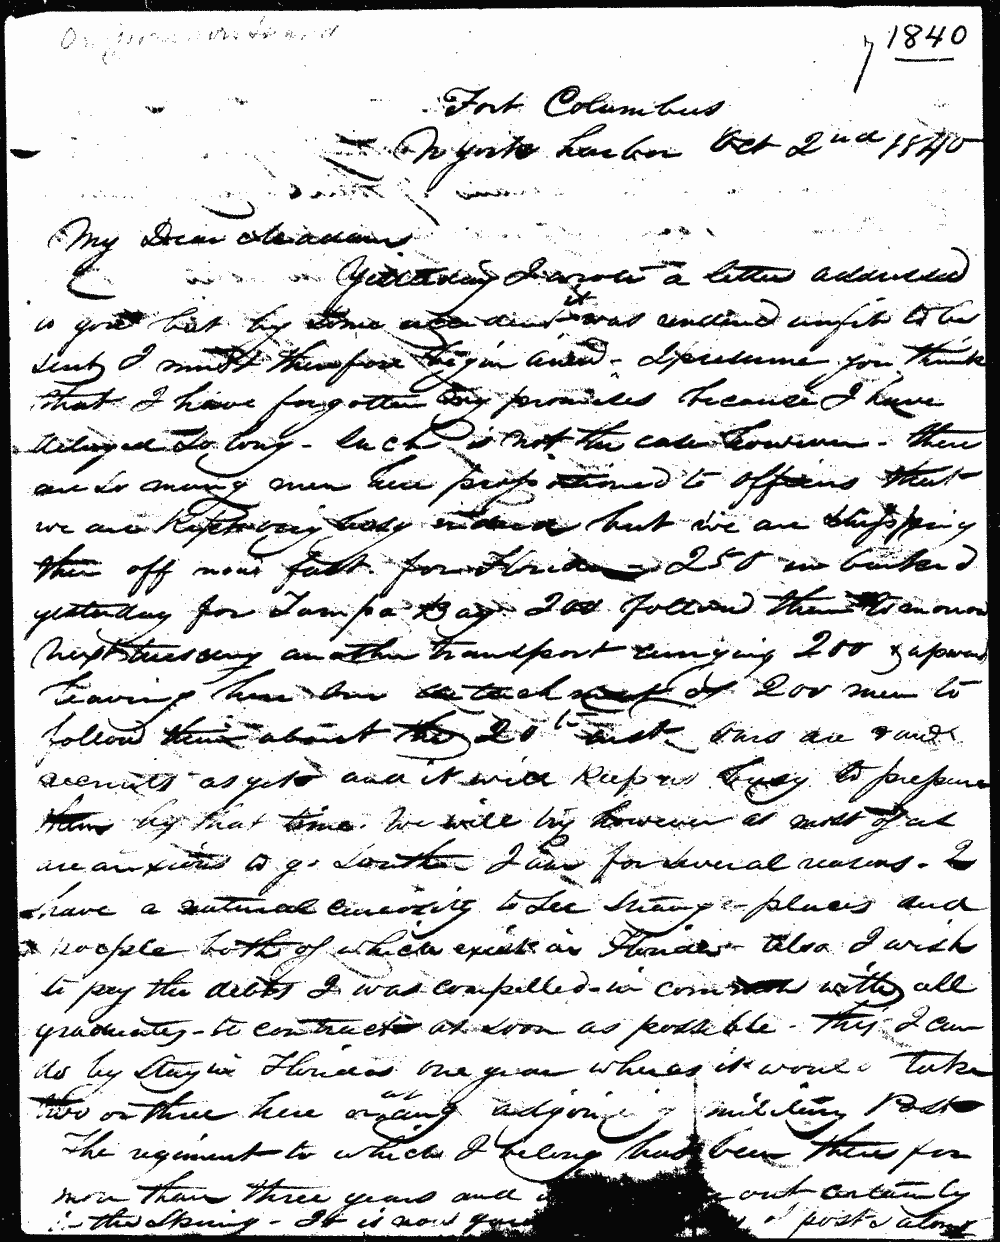 1840
Fort Columbus
N York harbor Oct 2nd 1840
My Dear Madam
Yesterday I wrote a letter addressed
to you but by some accident it was rendered unfit to be
sent I must therefore begin anew - I presume you think
that I have forgotten my promises because I have
delayed so long - Such is not the case however - there
are so many men here proportioned to officers that
we are kept very busy indeed but we are shipping
them off now fast for Florida - 250 embarked
yesterday for Tampa Bay 200 follow them tomorrow
Next tuesday another transport carrying 200 & upward
leaving here our detachment of 200 men to
follow them about the 20th inst. Ours are raw
recruits as yet and it will keep us busy to prepare
them by that time. We will try however as most of us
are anxious to go South I am for several reasons - I
have a natural curiosity to see strange places and
people both of which exist in Florida - Also I wish
to pay the debts I was compelled in common with all
graduates - to contract as soon as possible - This I can
do by stay in Florida one year whereas it would take
two or three here or at any adjoining military Post
The regiment to which I belong has been there for
more than three years and out certainly
in the Spring - It is now posts along